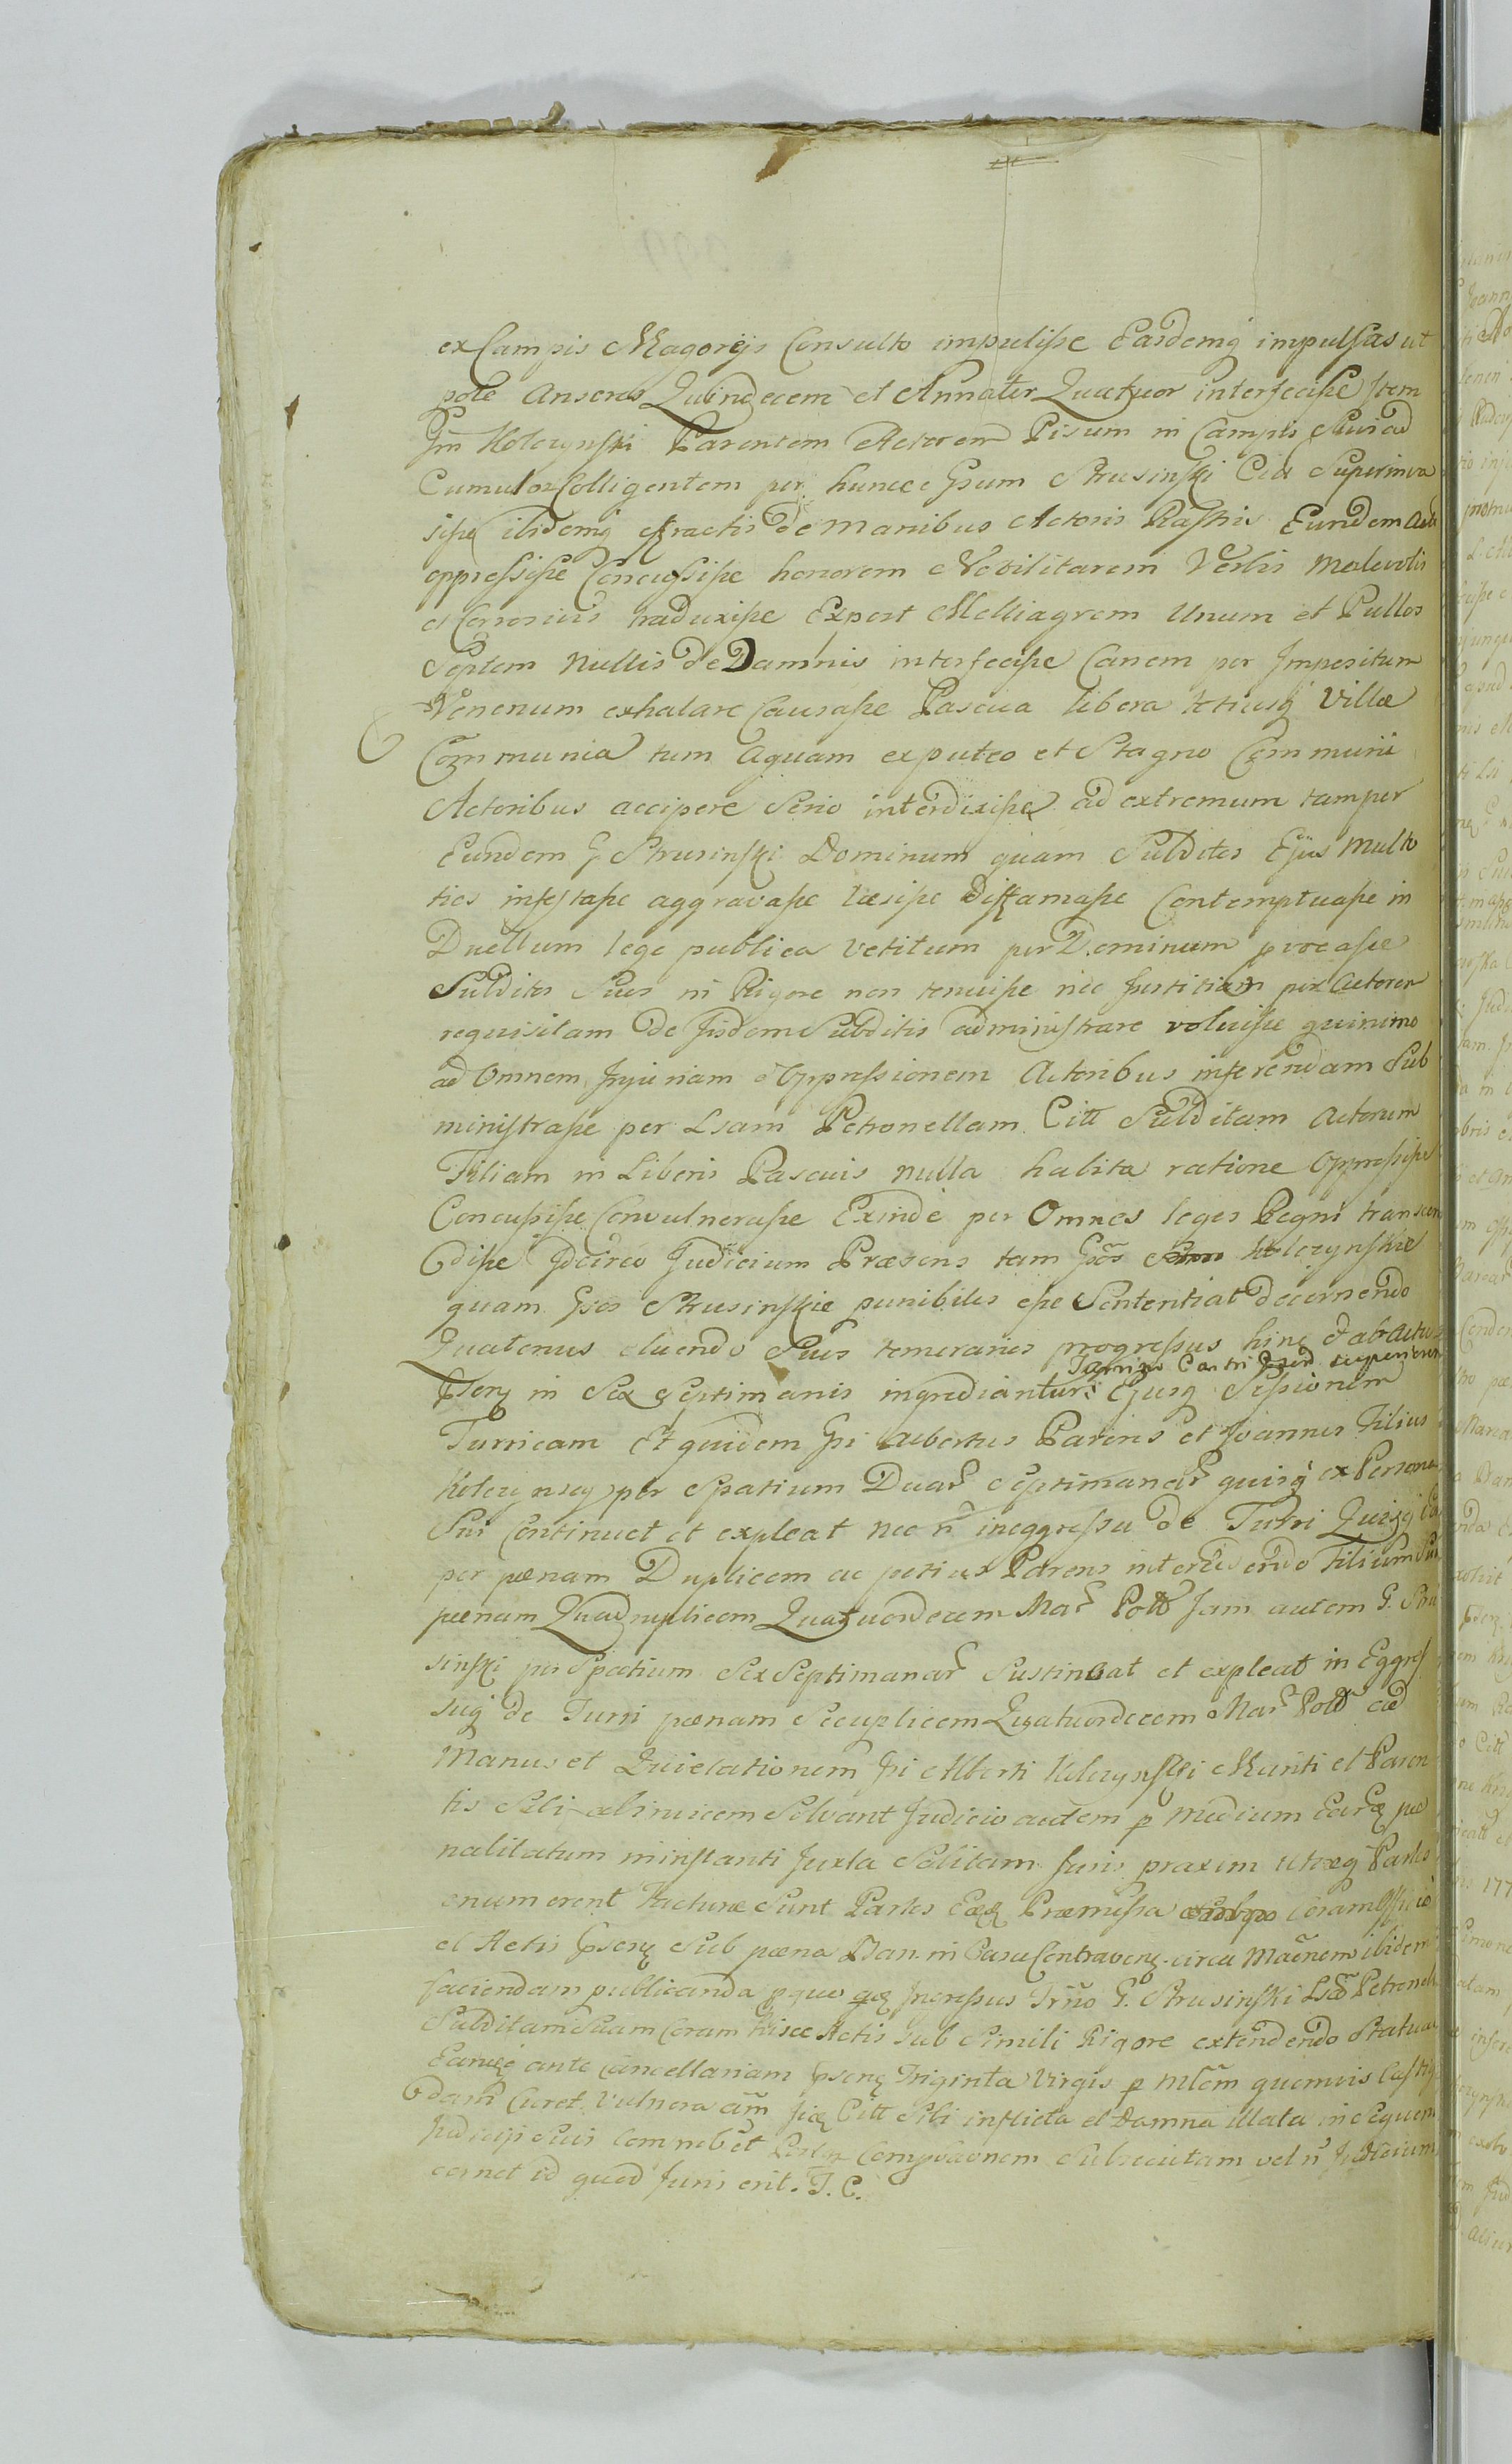 ex Campis Magorijs Consulto impulisse Easdemq impulsas ut
pote Anseres Quindecem et Annates Quatuor interfecisse Item
Gm Kolczynski Parentem Actorem Pisum in Campis Suis ad
Cumulos Colligentem per hunce Gsum Strusinski Cita Superinva
sisse ibidemq extractis de manibus Actoris Rastris Eundem
oppressisse Concussisse honorem Nobilitarem Verbis malevolis
et traduxisse Expost Melliagrem Unum et Pullos
Septem Nullis de Damnis interfecisse Canem per Impositum
Venenum exhalare Causasse Pascua libera Villæ
Communia tum Aquam ex puteo et Stagno Communi
Actoribus accipere Serio interdixisse ad extremum tam per
Eundem G Strusinski Dominum quam Subditos Ejus Multo
ties infestasse aggravasse læsisse diffamasse Contemptuasse in
Duellum lege publica vetitum per Dominum provocasse
Subditos Suos in Rigore non tenuisse nec Justitiam per Actorem
requisitam de Iisdem Subditis administrare voluisse quinimo
ad Omnem Injuriam Oppressionem Actoribus inferendam Sub
ministrasse per Lsam Petronellam Citt Subditam Actorum
Filiam in Liberis Pascuis nulla habita ratione Oppressisse
Concussisse Convulnerasse Exinde per Omnes leges Regni transcen
disse Idcirco Judicium Præsens tam Gsos Kolczynskie
quam Gsos Strusinskie punibiles esse Sententiat decernendo
Quatenus eluendo Suos temerarios progressus hinc et ab actu
Turrim Castri superiorem
in Sex Septimanis ingrediantur Ejusq Sessionem
Turricam Et quidem Gsi Albertus Parens et Joannes Filius
Kolczynscy per Spatium Duar Septimanar quisq ex Persona
Sui Continuet et expleat nec n in eggressu de Turri Quisq
per pænam Duplicem ac potius Parens intercedendo Filium
pænam Quadruplicem Quatuordecem Mar Poll Jam autem G. Stru
sinski per Spatium Sex Septimanar Sustineat et expleat in Eggres
suq de Turri pænam Secuplicem Quatuordecem Mar Poll ad
Manus et Quietationem Gsi Alberti Kolczynski Mariti et Paren
tis Sibi ab invicem Solvant Judicio autem p medium Earq pæ
nalitatum in instanti Juxta Solitam Juris praxim utræq Partes
enumerent Facturæ Sunt Partes Eæq Præmissa Coram Officio
et Actis Sub pæna Ban. in Casu Contraven circa ibidem
faciendam publicanda pquo Ingressus Trno G. Strusinski Petronel
Subditam Suam Coram hisce Actis sub Simili Rigore extendendo Statuat
Eamq ante Cancellariam Triginta Virgis p quemvis Castig
dam Curet Vulnera Citt Sibi inflicta et Damna illata in Sequen
Judicij Sui Compvaonem Subsecutam vel n Judicium
cernet id quod Juris erit. T. C.